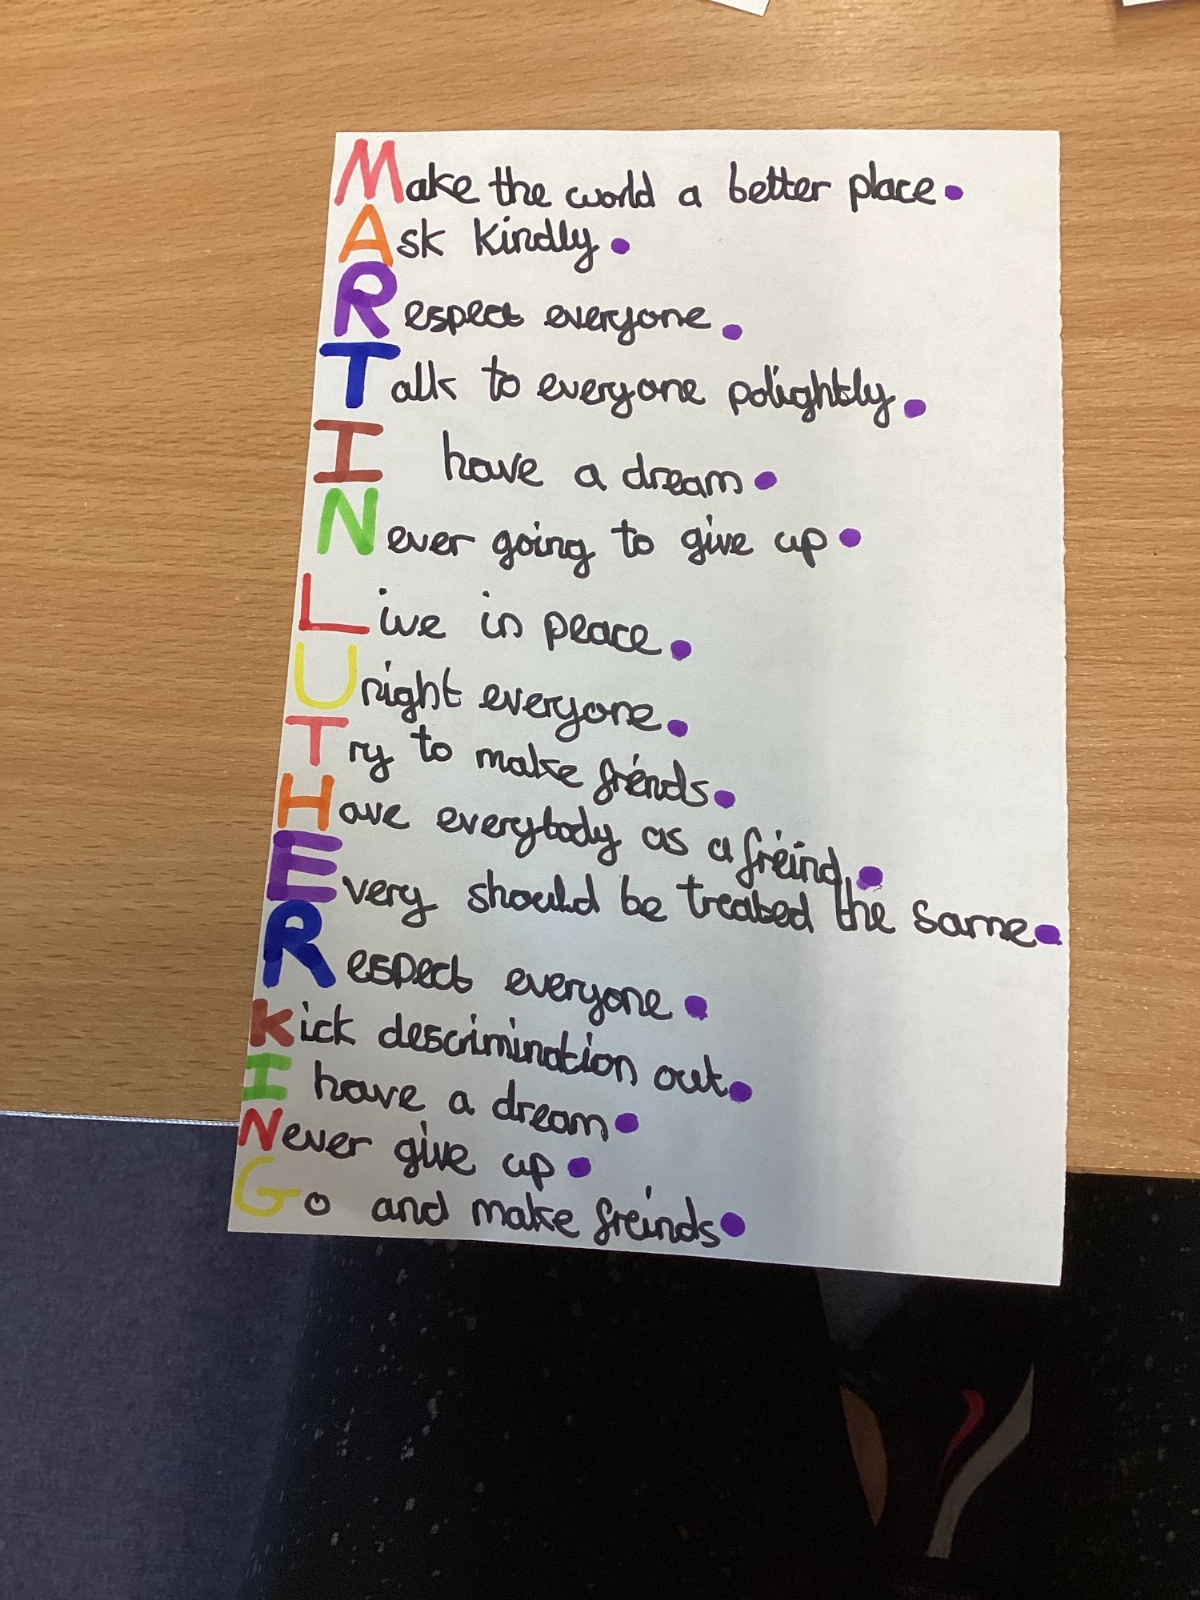 Make the world a better place.
Ask kindly.
Respect everyone.
Talk to everyone polightly.
I have a dream.
Never going to give up.
Live in peace.
Unight everyone.
Try to make friends.
Have everybody as a freind.
Every should be treated the same.
Respect everyone.
Kick descrimination out.
I have a dream.
Never give up.
Go and make freinds.